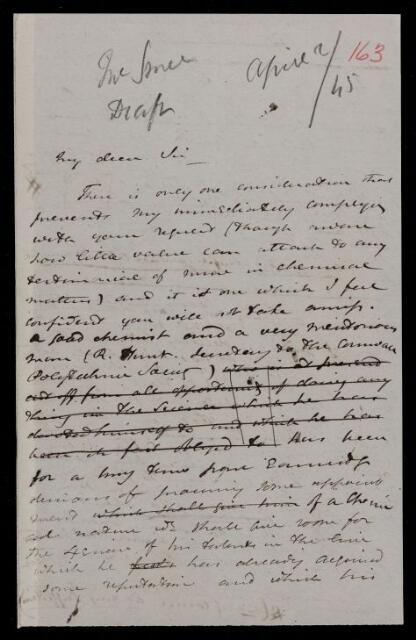 163
April 2/45
Draft
My dear Sir
There is only one consideration that
prevents my immediately complying
with your request (though aware
how little value can attach to any
testimonial of mine in chemical
matters) and it is one which I feel
confident you will not take amiss.
a good chemist and a very meritorious
man (R. Hunt. Secretary to the Cornwall
Polytechnic Socy) who is at present
cut off from all opportunity of doing any
thing in the Science which he has
devoted himself to and which he has
been in fact obliged to has been
for a long time past earnestly
desirous of procuring some appoint
ment which shall give him of a Chemi
cal nature wh shall give room for
the exercise of his talents in the line
which he has already acquired
some reputation and which his